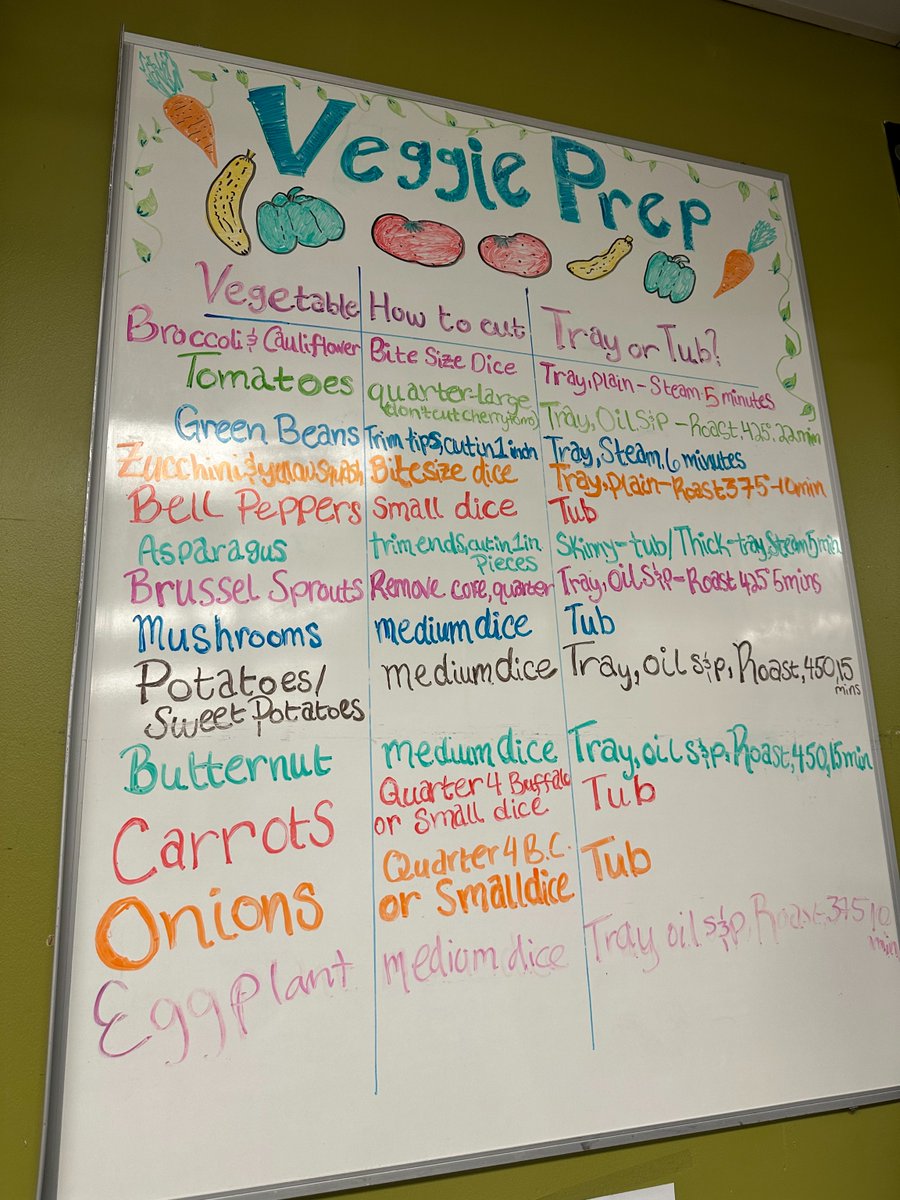 Veggie Prep
Vegetable How to cut Tray or Tub?
Broccoli & Cauliflower Bite Size Dice Tray, plain - Steam 5 minutes
Tomatoes quarter-large Tray, Oil S&P - Roast, 425° 22min
Green Beans Trim tips, cut in 1 inch Tray, Steam, 6 minutes
Zucchini & yellow squash Bite size dice Tray, Plain - Roast 375° - 10 min
Bell Peppers Small dice Tub
Asparagus trim ends, cut in 1 in Skinny-tub/Thick-tray, Steam 5 min
Pieces
Brussel Sprouts Remove core, quarter Tray, Oil S&P - Roast 425° 5 mins
Mushrooms medium dice Tub
Potatoes/ medium dice Tray, oil s&p, Roast, 450, 15
Sweet Potatoes mins
Butternut medium dice Tray, oil s&p, Roast, 450, 15 min
Carrots Quarter 4 Buffalo Tub
or Small dice
Onions Quarter 4 B.C. Tub
or Small dice
Eggplant medium dice Tray oil s&p, Roast, 375 10
min